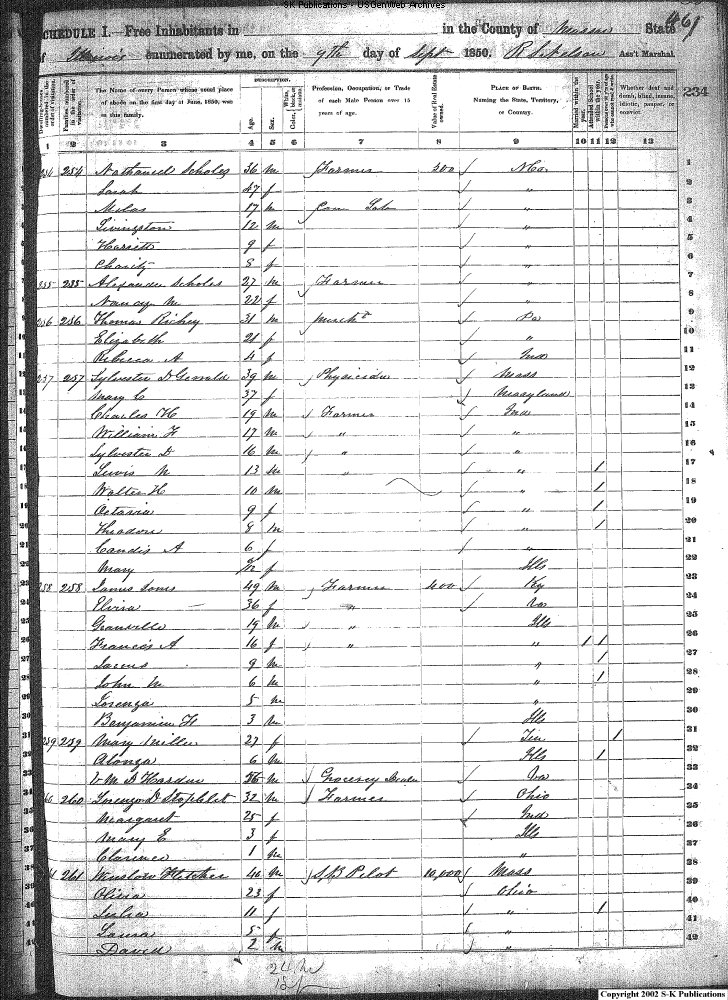 SK Publications - USGenWeb Archives
SCHEDULE I.—Free Inhabitants in in the County of Mason State 461
of Illinois enumerated by me, on the 9th day of Sept 1850. Ass't Marshal.
234
Dwelling-houses numbered in the order of visitation.
Families numbered in the order of visitation.
The Name of every Person whose usual place of abode on the first day of June, 1850, was in this family.
DESCRIPTION.
Age.
Sex.
White, black, or mulatto.
Color,
Profession, Occupation, or Trade of each Male Person over 15 years of age.
Value of Real Estate owned.
PLACE OF BIRTH. Naming the State, Territory, or Country.
Married within the year.
Attended School within the year.
Whether deaf and dumb, blind, insane, idiotic, pauper, or convict.
1 2 3 4 5 6 7 8 9 10 11 12 13
254 254 Nathaniel Scholes 36 m Farmer 300 N Ca 1
Sarah 47 f " 2
Milas 17 m Com Lab " 3
Livingston 12 m " 4
Harriett 9 f " 5
Charity 8 f " 6
255 255 Alexander Scholes 27 m Farmer " 7
Nancy M 22 f " 8
256 256 Thomas Richey 31 m Mercht Pa 9
Elizabeth 21 f " 10
Rebecca A 4 f Ind 11
257 257 Sylvester D 39 m Physician Mass 12
Mary C 37 f Maryland 13
Charles H 19 m Farmer Ind 14
William F 17 m " " 15
Sylvester D 16 m " " 16
Lewis N 13 m " " 1 17
Walter H 10 m " 1 18
Octavia 9 f " 1 19
Theodore 8 m " 1 20
Candis A 6 f " 21
Mary f Ills 22
258 258 James Jones 49 m Farmer 400 Ky 23
Elvira 36 f " Va 24
Granville 19 m " Ills 25
Francis A 16 f " " 1 1 26
9 m " 1 27
John M 6 m " 1 28
Lorenza 5 m " 29
Benjamin F 3 m Ills 30
259 259 Mary Miller 27 f Ten 1 31
Alonza 6 m Ills 1 32
Wm D Hardin m Grocery Dealer Va 33
260 260 Lorenzo D Stophlet 32 m Farmer Ohio 34
Margaret 25 f Ind 35
Mary E 3 f Ills 36
Clarence 1 m " 37
261 261 Winslow Fletcher 40 m S B Pilot 10,000 Mass 38
Olivia 23 f Ohio 39
Julia 11 f " 1 40
Laura 5 f " 41
David 2 m " 42
24 m
18 f
Copyright 2002 S-K Publications